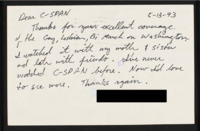 Dear C-SPAN 5-13-93
Thanks for your excellent coverage
of the Gay, Lesbian, Bi March on Washington
I watched it with my moth & sister
and later with friends. I've never
watched C-SPAN before. Now I'd love
to see more. Thanks again.